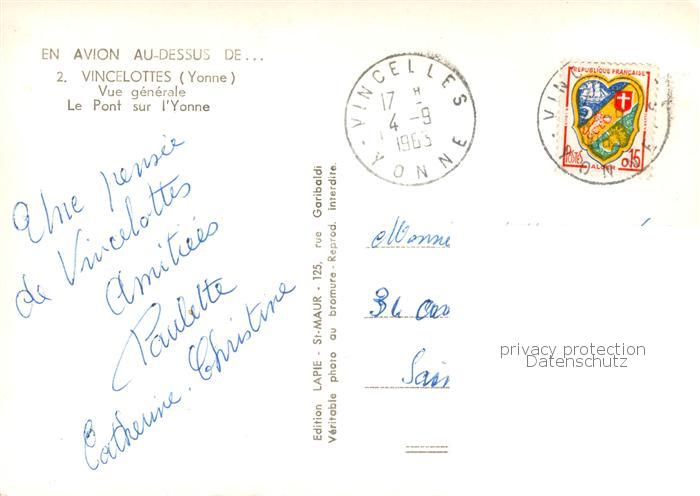 EN AVION AU-DESSUS DE...
2. VINCELOTTES (Yonne)
Vue générale
Le Pont sur l'Yonne
VINCELLES
17 H
4 -9
1963
YONNE
REPUBLIQUE FRANÇAISE
POSTES
ALGER
0,15
Une pensée
de Vincelottes
Amitiées
Paulette
Catherine. Christine
Edition LAPIE - St-MAUR - 125, rue Garibaldi
Véritable photo au bromure - Reprod. interdite.
privacy protection
Datenschutz